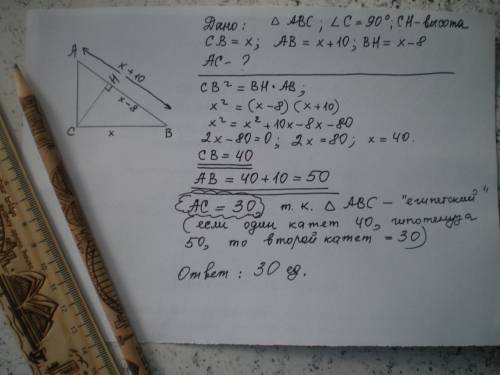 Дано: △ ABC; ∠C = 90°; CH - высота
CB = x; AB = x+10; BH = x-8
AC - ?
CB² = BH · AB;
x² = (x-8)(x+10)
x² = x² + 10x - 8x - 80
2x - 80 = 0; 2x = 80; x = 40.
CB = 40
AB = 40 + 10 = 50
AC = 30, т.к. △ ABC - "египетский"
(если один катет 40, гипотенуза
50, то второй катет = 30)
Ответ: 30 ед.
A
x+10
H
x-8
C
x
B